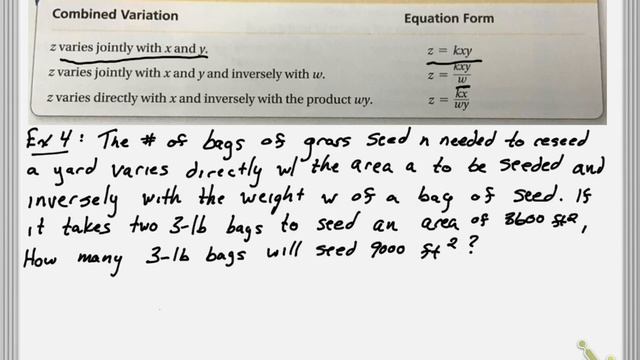 Combined Variation Equation Form
z varies jointly with x and y. z = kxy
z varies jointly with x and y and inversely with w. z = kxy/w
z varies directly with x and inversely with the product wy. z = kx/wy
Ex 4: The # of bags of grass seed n needed to reseed
a yard varies directly w/ the area a to be seeded and
inversely with the weight w of a bag of seed. If
it takes two 3-lb bags to seed an area of 3600 ft²,
How many 3-lb bags will seed 9000 ft²?